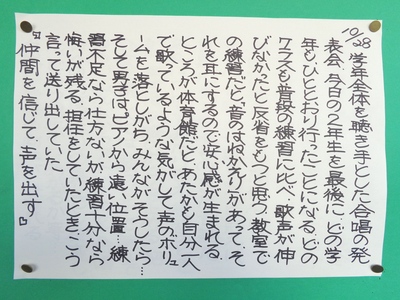 10/28 学年全体を聴き手とした合唱の発
表会、今日の2年生を最後に、どの学
年もひととおり行ったことになる。どの
クラスも普段の練習に比べ、歌声が伸
びなかったと反省をもつと思う。教室で
の練習だと“音のはねかえり”があって、そ
れを耳にするので安心感が生まれる。
ところが体育館だと、あたかも自分一人
で歌っているような気がして声のボリュ
ームを落としがち。みんながそうしたら…
そして男子はピアノから遠い位置…。練
習不足なら仕方ないが練習十分なら
悔いが残る。担任をしていたとき、こう
言って送り出していた。
『仲間を信じて、声を出す。』